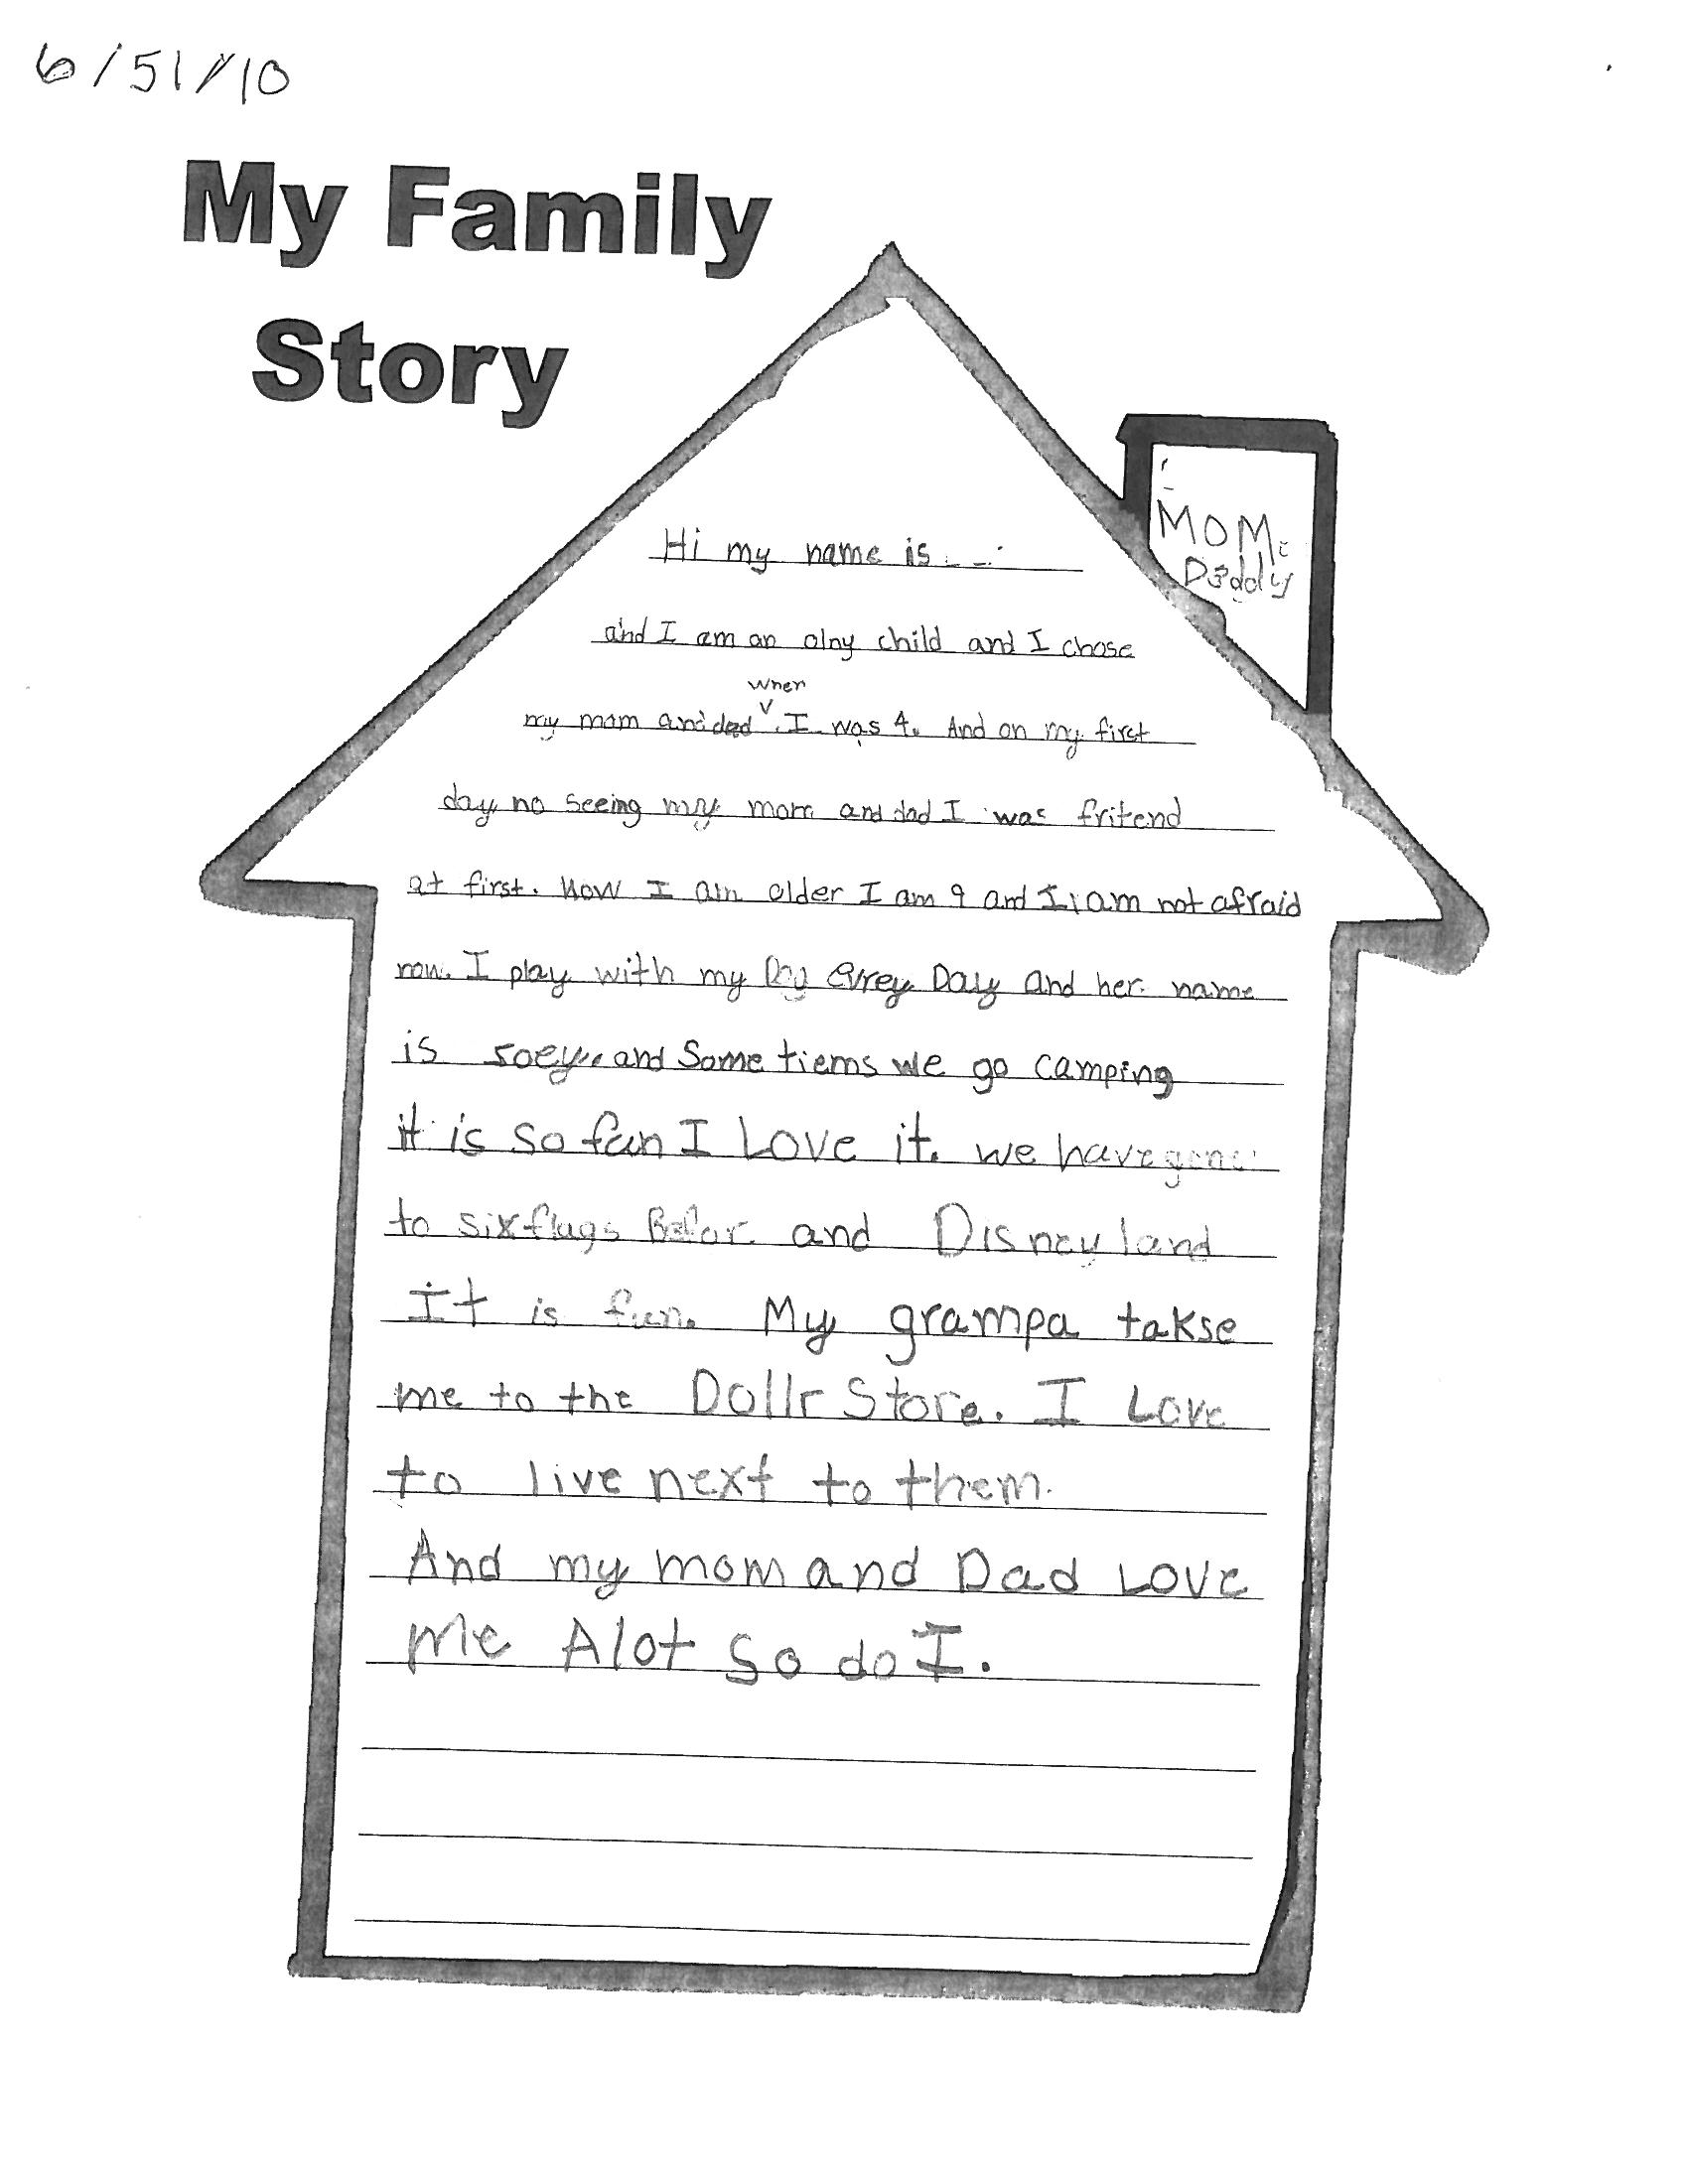 6/51/10
My Family
Story
MOM
Daddy
Hi my name is
and I am an olny child and I chose
when
my mom and dad I was 4. And on my first
day no seeing my mom and dad I was fritend
at first. Now I am older I am 9 and I am not afraid
now. I play with my Dog evrey Day and her name
is soey.. and Some tiems we go camping
it is so fun I Love it. we have gone
to sixflags Befor and Disneyland
It is fun. My grampa takse
me to the Dollr Store. I Love
to live next to them.
And my mom and Dad Love
me Alot So do I.